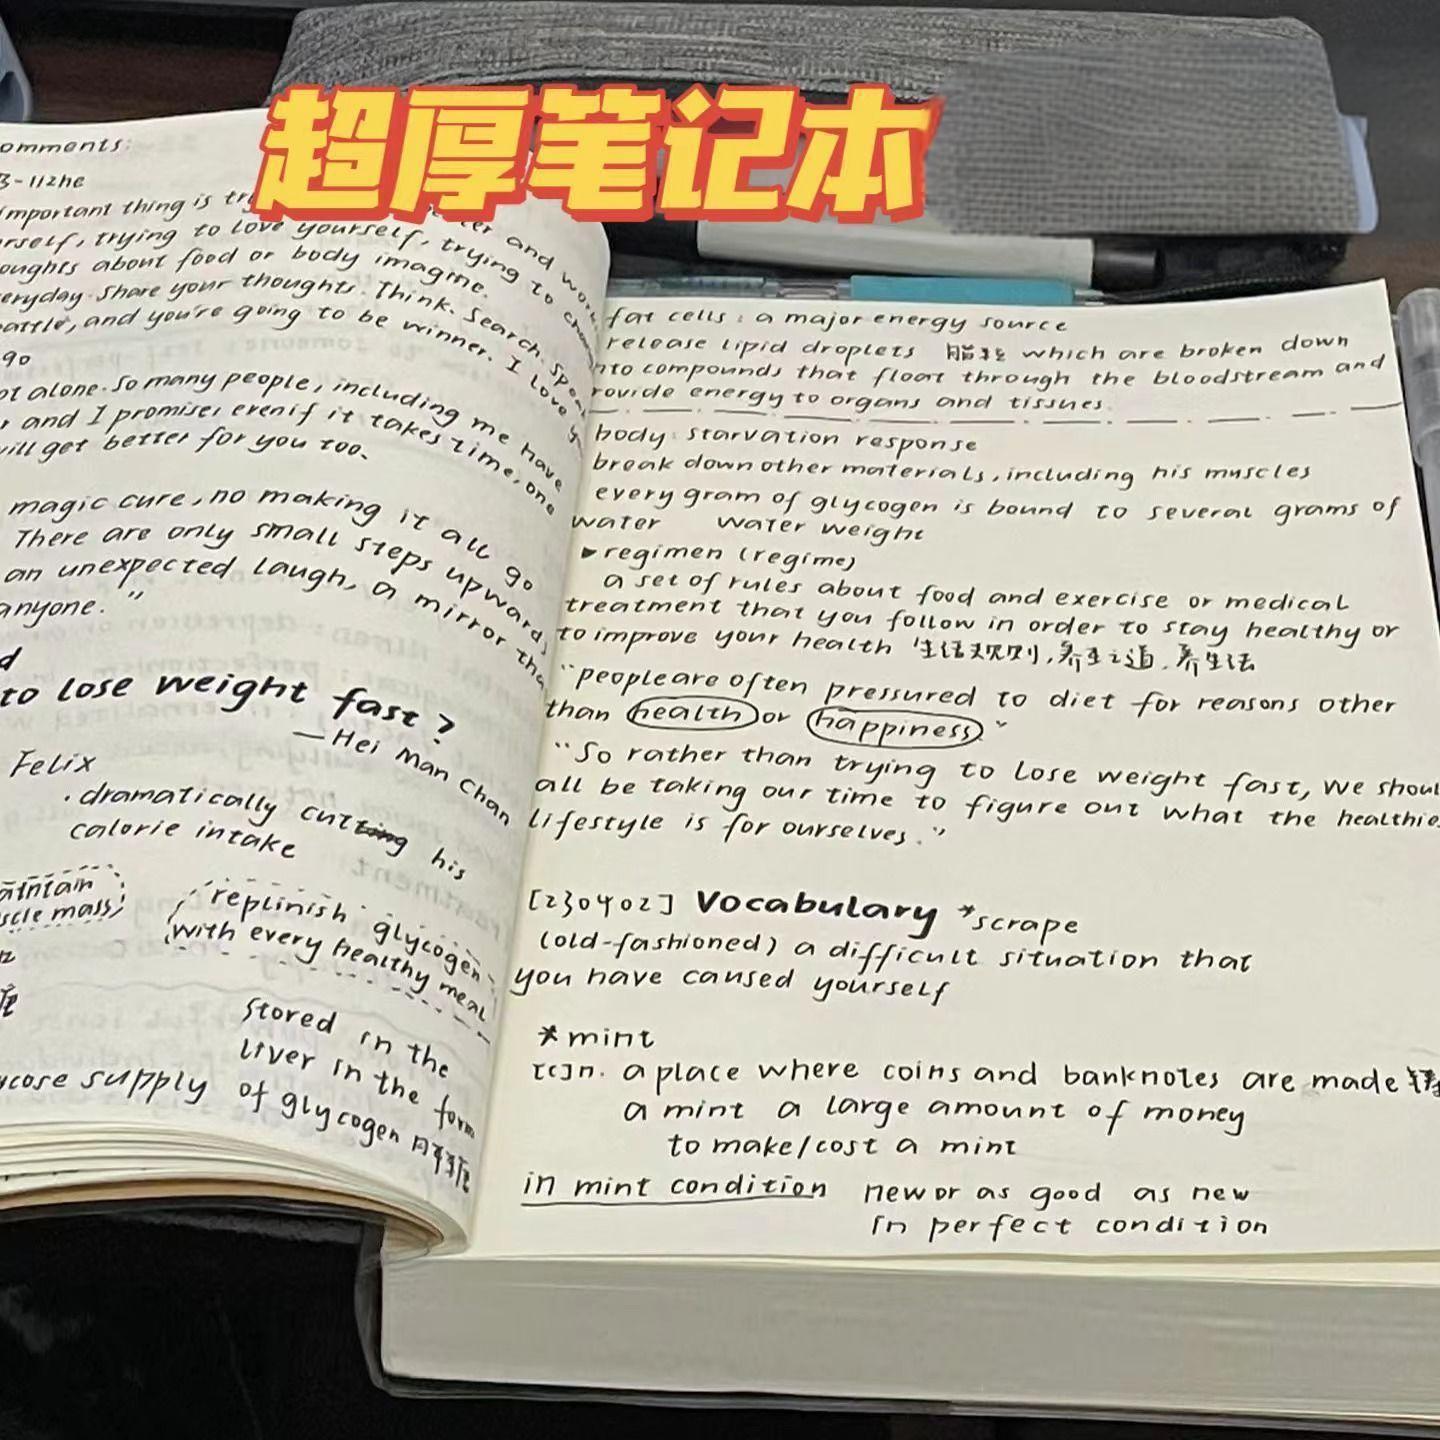 超厚笔记本
omments:
important thing is
rself, trying to love yourself, trying to
oughts about food or body imagine.
eryday. Share your thoughts. Think. Search. Speak
battle, and you're going to be winner. I love
go
ot alone. So many people, including me have
and I promise, even if it takes time, one
will get better for you too.
magic cure, no making it all go
There are only small steps upward,
an unexpected laugh, a mirror tha
anyone."
d
to lose weight fast?
—Hei Man Chan
Felix
. dramatically cutting his
calorie intake
aintain
scle mass
replinish glycogen
with every healthy meal
stored in the
liver in the form
of glycogen 肝糖
cose supply
fat cells: a major energy source
release lipid droplets 脂粒 which are broken down
nto compounds that float through the bloodstream and
rovide energy to organs and tissues.
body: starvation response
break down other materials, including his muscles
every gram of glycogen is bound to several grams of
water water weight
▸ regimen (regime)
a set of rules about food and exercise or medical
treatment that you follow in order to stay healthy or
to improve your health 生活规则, 养生之道, 养生法
"people are often pressured to diet for reasons other
than health or happiness."
"So rather than trying to lose weight fast, we shoul
all be taking our time to figure out what the healthies
lifestyle is for ourselves."
[230402] Vocabulary *scrape
(old-fashioned) a difficult situation that
you have caused yourself
*mint
[C]n. a place where coins and banknotes are made
a mint a large amount of money
to make/cost a mint
in mint condition new or as good as new
in perfect condition